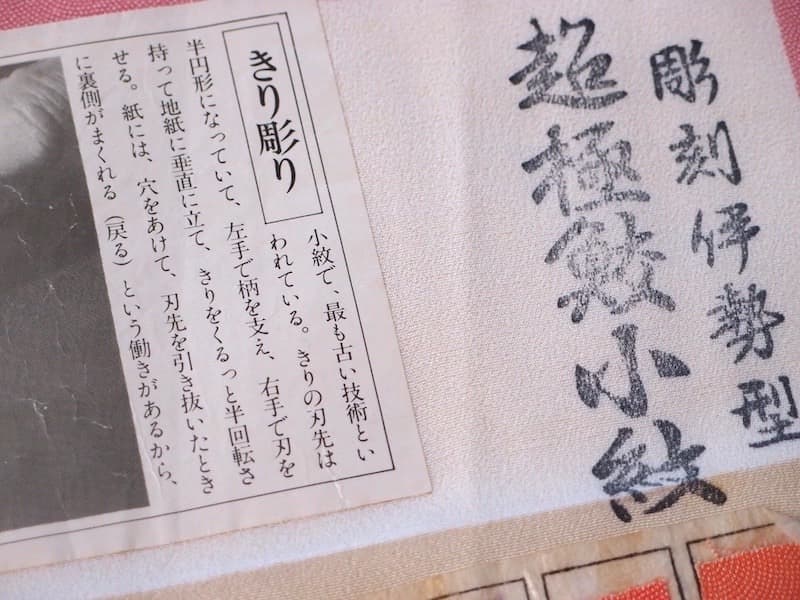 彫刻伊勢型
超極鮫小紋
きり彫り
小紋で、最も古い技術とい
われている。きりの刃先は
半円形になっていて、左手で柄を支え、右手で刃を
持って地紙に垂直に立て、きりをくるっと半回転さ
せる。紙には、穴をあけて、刃先を引き抜いたとき
に裏側がまくれる（戻る）という働きがあるから、